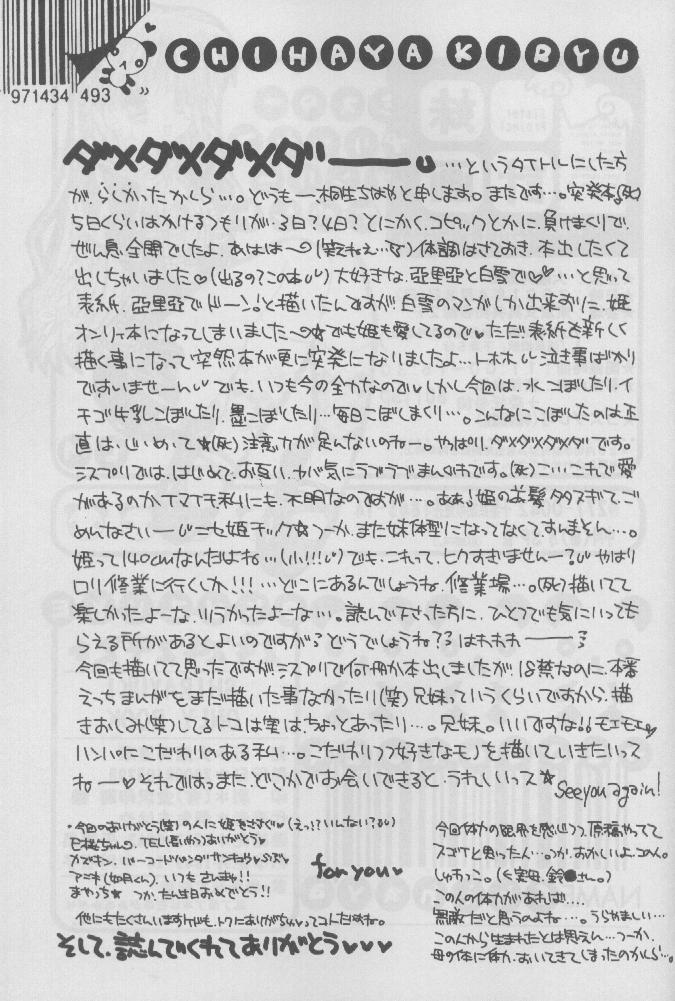 CHIHAYA KIRYU
971434 493
ダメダメダメダーー…というタイトルにした方
が、らしかったかしら…。どうもー、桐生ちはやと申します。またです…。突発本(死)
5日くらいはかけるつもりが、3日?4日?とにかく、コピックとかに、負けまくりで、
ぜん息、全開でしたよ、あはは〜(笑えねぇ…死)体調はさておき、本出したくて
出しちゃいました♡(出るの?この本)大好きな、亞里亞と白雪で♡♡…と思って
表紙、亞里亞でドーン!と描いたんですが白雪のマンガしか出来ずに、姫
オンリー本になってしまいました〜☆でも姫も愛してるので♥ただ表紙を新しく
描く事になって突然本が更に突発になりましたよ…トホホ 泣き事ばかり
ですいませーん でも、いつも今の全力なので♥しかし今回は、水こぼしたり、イ
チゴ牛乳こぼしたり、墨こぼしたり…毎日こぼしまくり…。こんなにこぼしたのは正
直は、じめって★(死)注意力が足んないのねー。やっぱり、ダメダメダメダです。
シスプリでは、はじめて、お互い、ヤバ気にラブラブまんがです。(死)こ…これで愛
があるのかイマイチ私にも、不明なのですが…。ああ!姫のお髪タクスギて、ご
めんなさいー ニセ姫チック☆つーか、また妹体型になってなくてすいません…。
姫って140cmなんだよね…(小!!!)でも、これって、ヒクすぎませんー?やはり
ロリ修業に行くしか!!!…どこにあるんでしょうね、修業場…。(死)描いてて
楽しかったよーな、ツラかったよーな…。読んで下さった方に、ひとつでも気にいっても
らえる所があるとよいのですが?どうでしょうね??はわわわーーー
今回も描いてて思ったですがシスプリで何冊か本出しましたが、18禁なのに、本番
えっちまんがをまだ描いた事なかったり(笑)兄妹っていうくらいですから、描
きおしみ(笑)してるトコは実は、ちょっとあったり…。兄妹。いいですな!!モエモエ♥
ハンパにこだわりのある私…。こだわりつつ好きなモノを描いていきたいっス
ねー♥それではっまた、どこかでお会いできると、うれしいっス★
See you again!
・今回のありがとう(笑)の人に姫をきせぐ♥(えっ!?いんない?)
for you♥
アニキ(如月くん)、いつもさんきゅ!!
まやっち★ つか、たん生日おめでとう!!
他にもたくさんいますケド、トクにありがちゅ♥ってコトだよね。
そして、読んでくれてありがとう♥♥♥
今回体力の限界を感じつつ、原稿やってて
スゴイと思った人…つか、おかしいよ、コの人。
この人の体力があれば....
無敵だと思うのよね…。うらやましい…
この人から生まれたとは思えん…つーか、
母の体に体力、おいてきてしまったのかしら…。